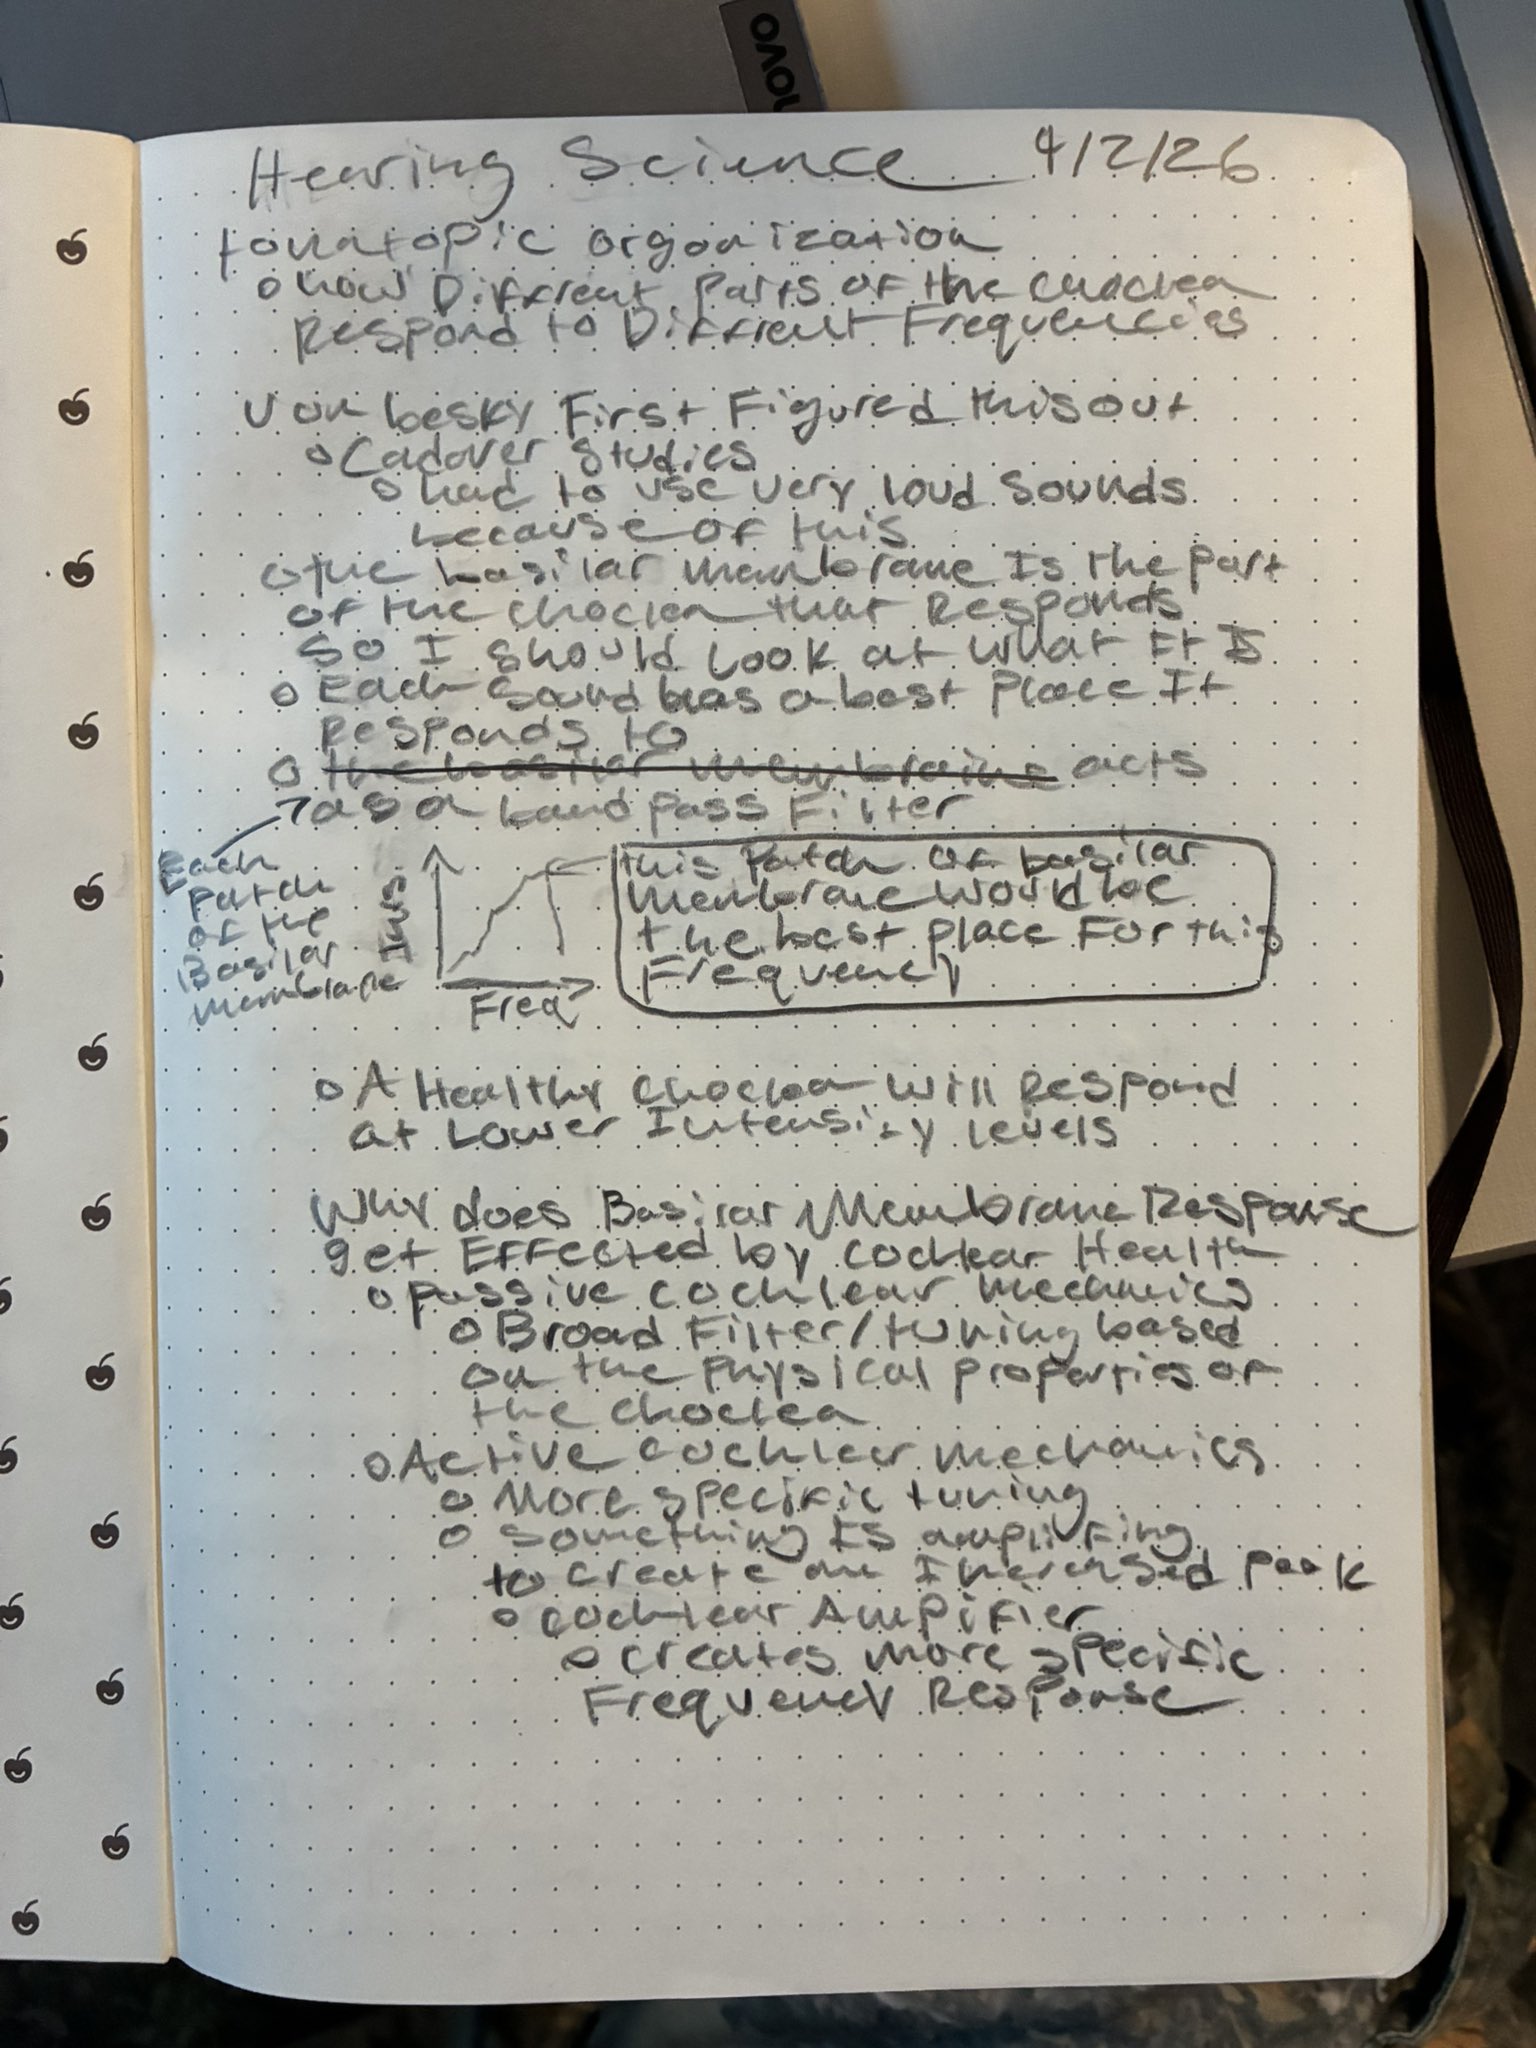 ovo
Hearing Science 4/2/26
tonatopic organization
o how Diffrent Parts of the choclea
Respond to Diffrent Frequencies
Von besky First Figured this out
o Cadaver Studies
o had to use very loud sounds
because of this
o the basilar membrane Is the part
of the choclea that Responds
So I should look at what It Is
o Each sound has a best place It
Responds to
o the basilar membrains acts
as a band pass Filter
Each
Patch
of the
Basilar
membrane
Freq
this Patch of basilar
membrane would be
the best place For this
Frequency
o A Healthy choclea will Respond
at Lower Intensity levels
Why does Basilar Membrane Response
get Effected by cochlear Health
o passive cochlear mechanics
o Broad Filter/tuning based
on the physical properties of
the choclea
o Active cochlear mechanics
o More specific tuning
o something Is amplifing
to create an Incresed peak
o cochlear Ampifier
o creates more specific
Frequency Response